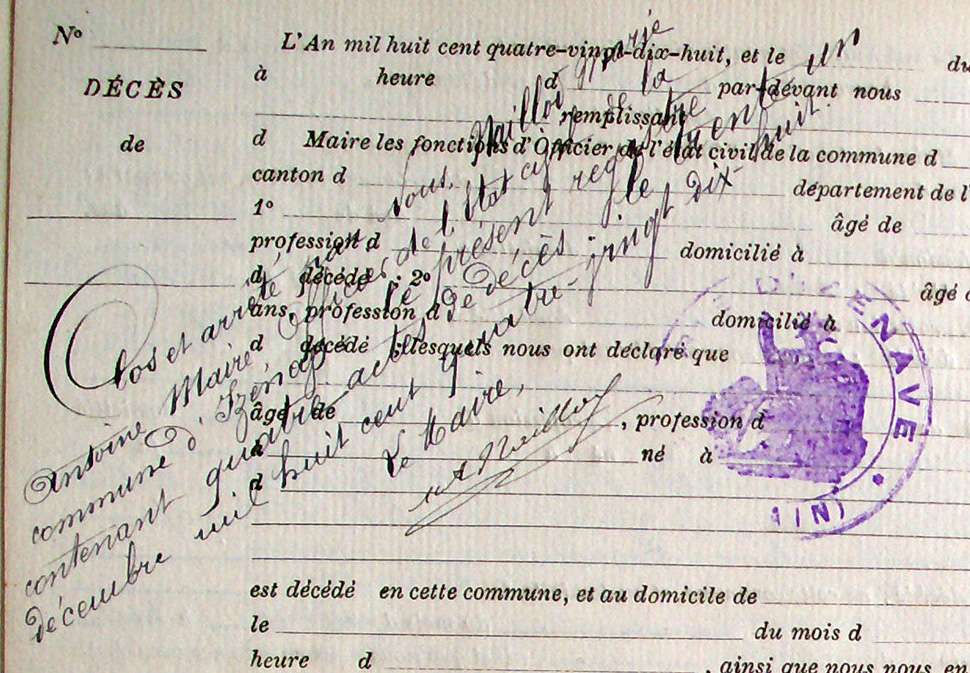 N°
DÉCÈS
de
L'An mil huit cent quatre-vingt-dix-huit, et le du
à heure d par-devant nous
remplissant
d Maire les fonctions d'Officier de l'état civil de la commune d
canton d département de l'
1° âgé de
profession d domicilié à
d décédé ; 2° âgé d
ans, profession d domicilié à
d décédé ; lesquels nous ont déclaré que
âgé de , profession d
d né à
d
est décédé en cette commune, et au domicile de
le du mois d
heure d , ainsi que nous nous en
Clos et arrêté par nous, Maillod
Antoine Maire, Officier de l'état civil de la
commune d'Izenave le présent registre
contenant quatre actes de décès le trente un
décembre mil huit cent quatre-vingt dix-huit.
Le Maire,
A Maillod
D'IZENAVE
(AIN)